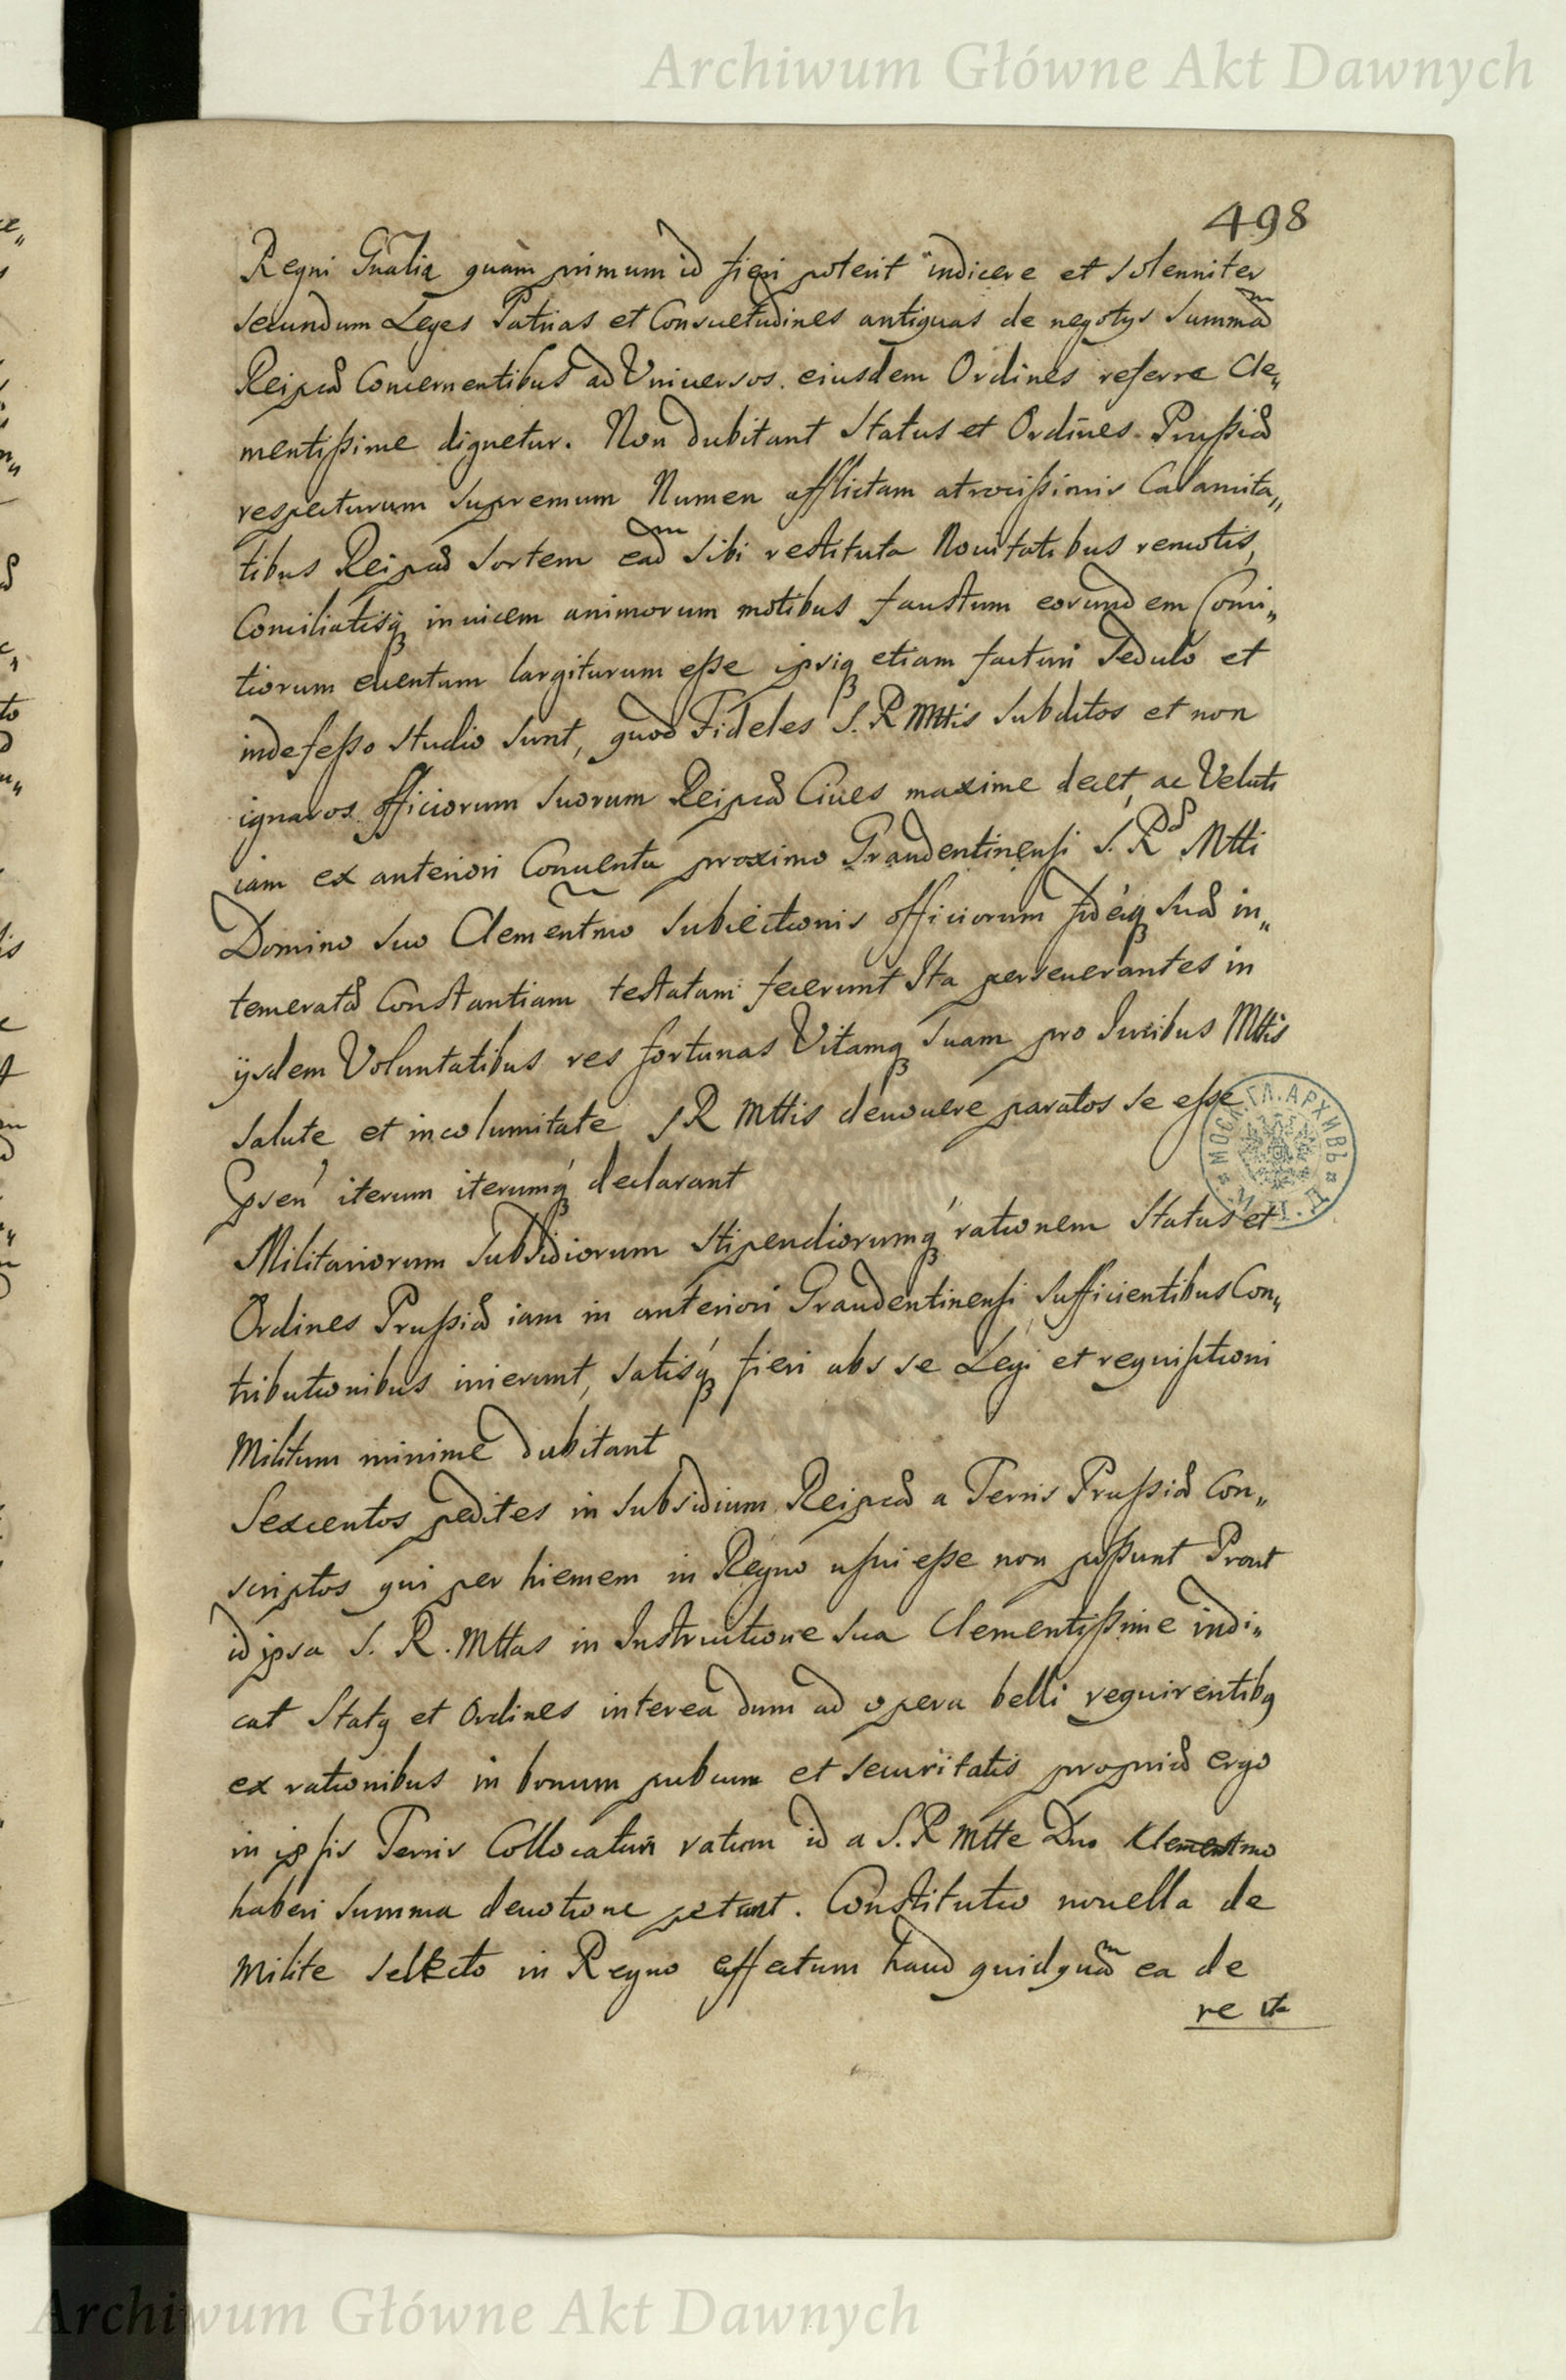 Archiwum Główne Akt Dawnych
498
Regni Gnãlia quàm primum id fieri poterit indicere et solenniter
secundum Leges Patrias et Consuetudines antiquas de negotys summã
Reipcæ Concernentibus ad Vniuersos eiusdem Ordines referre Cle„
mentißime dignetur. Non dubitant Status et Ordines Prußiæ
respecturum supremum Numen afflictam atrocißimis Calamita„
tibus Reipcæ sortem eãd sibi restituta Nouitatibus remotis,
Conciliatisq inuicem animorum motibus faustum eorundem Comi„
tiorum euentum largiturum eße ipsiq etiam facturi sedulo et
indefeßo studio sunt, quod Fideles S. R Mttis subditos et non
ignaros officiorum suorum Reipcæ Ciues maxime decet, ac Veluti
iam ex anteriori Conuentu proximo Graudentinensi S. Ræ Mtti
Domino suo Clementmo subiectionis officiorum fideiq suæ in„
temeratæ Constantiam testatam fecerunt Ita perseuerantes in
ijsdem Voluntatibus res fortunas Vitamq suam pro Iuribus Mttis
salute et incolumitate S R Mttis deuouere paratos se eße
Psen iterum iterumq declarant
Militariorum subsidiorum stipendiorumq rationem Status et
Ordines Prußiæ iam in anteriori Graudentinensi sufficientibus Con„
tributionibus inierunt, satisq fieri abs se Legi et requisitioni
Militum minime dubitant
Sexcentos pedites in subsidium Reipcæ a Terris Prußiæ Con„
scriptos qui per hiemem in Regno usui eße non poßunt Prout
id ipsa S. R. Mttas in Instructione sua Clementißime indi„
cat Statq et Ordines interea dum ad opera belli requirentibq
ex rationibus in bonum pubcum et securitatis propriæ ergo
in ipsis Terris Collocaturi ratum id a S. R Mtte Dno Clementmo
haberi summa deuotione petunt. Constitutio nouella de
Milite selecto in Regno effectum haud quidquã ea de
re ita
МОСК. ГЛ. АРХИВЪ
Archiwum Główne Akt Dawnych